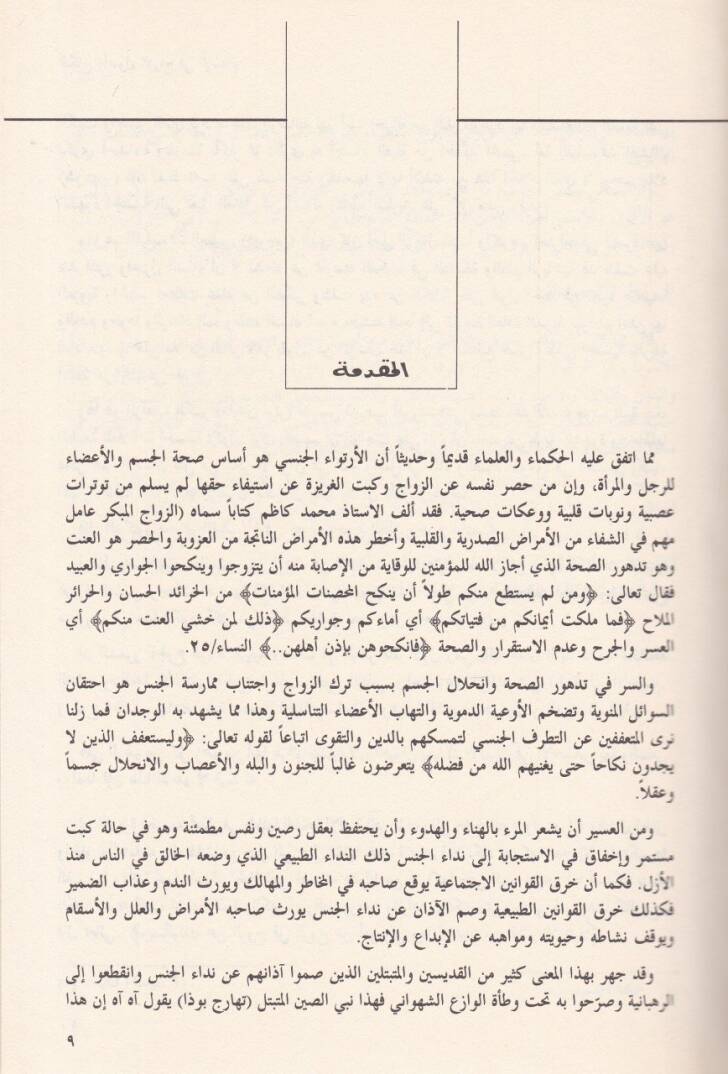 المقدمة
مما اتفق عليه الحكماء والعلماء قديماً وحديثاً أن الأرتواء الجنسي هو أساس صحة الجسم والأعضاء
للرجل والمرأة، وإن من حصر نفسه عن الزواج وكبت الغريزة عن استيفاء حقها لم يسلم من توترات
عصبية ونوبات قلبية ووعكات صحية. فقد ألف الاستاذ محمد كاظم كتاباً سماه (الزواج المبكر عامل
مهم في الشفاء من الأمراض الصدرية والقلبية وأخطر هذه الأمراض الناتجة من العزوبة والحصر هو العنت
وهو تدهور الصحة الذي أجاز الله للمؤمنين للوقاية من الإصابة منه أن يتزوجوا وينكحوا الجواري والعبيد
فقال تعالى: ﴿ومن لم يستطع منكم طولاً أن ينكح المحصنات المؤمنات﴾ من الخرائد الحسان والحرائر
الملاح ﴿فما ملكت أيمانكم من فتياتكم﴾ أي أماءكم وجواريكم ﴿ذلك لمن خشي العنت منكم﴾ أي
العسر والجرح وعدم الاستقرار والصحة ﴿فإنكحوهن بإذن أهلهن..﴾ النساء/٢٥.
والسر في تدهور الصحة وانحلال الجسم بسبب ترك الزواج واجتناب ممارسة الجنس هو احتقان
السوائل المنوية وتضخم الأوعية الدموية والتهاب الأعضاء التناسلية وهذا مما يشهد به الوجدان فما زلنا
نرى المتعففين عن التطرف الجنسي لتمسكهم بالدين والتقوى اتباعاً لقوله تعالى: ﴿وليستعفف الذين لا
يجدون نكاحاً حتى يغنيهم الله من فضله﴾ يتعرضون غالباً للجنون والبله والأعصاب والانحلال جسماً
وعقلاً.
ومن العسير أن يشعر المرء بالهناء والهدوء وأن يحتفظ بعقل رصين ونفس مطمئنة وهو في حالة كبت
مستمر وإخفاق في الاستجابة إلى نداء الجنس ذلك النداء الطبيعي الذي وضعه الخالق في الناس منذ
الأزل. فكما أن خرق القوانين الاجتماعية يوقع صاحبه في المخاطر والمهالك ويورث الندم وعذاب الضمير
فكذلك خرق القوانين الطبيعية وصم الآذان عن نداء الجنس يورث صاحبه الأمراض والعلل والأسقام
ويوقف نشاطه وحيويته ومواهبه عن الإبداع والإنتاج.
وقد جهر بهذا المعنى كثير من القديسين والمتبتلين الذين صموا آذانهم عن نداء الجنس وانقطعوا إلى
الرهبانية وصرّحوا به تحت وطأة الوازع الشهواني فهذا نبي الصين المتبتل (تهارج بوذا) يقول آه آه إن هذا
٩